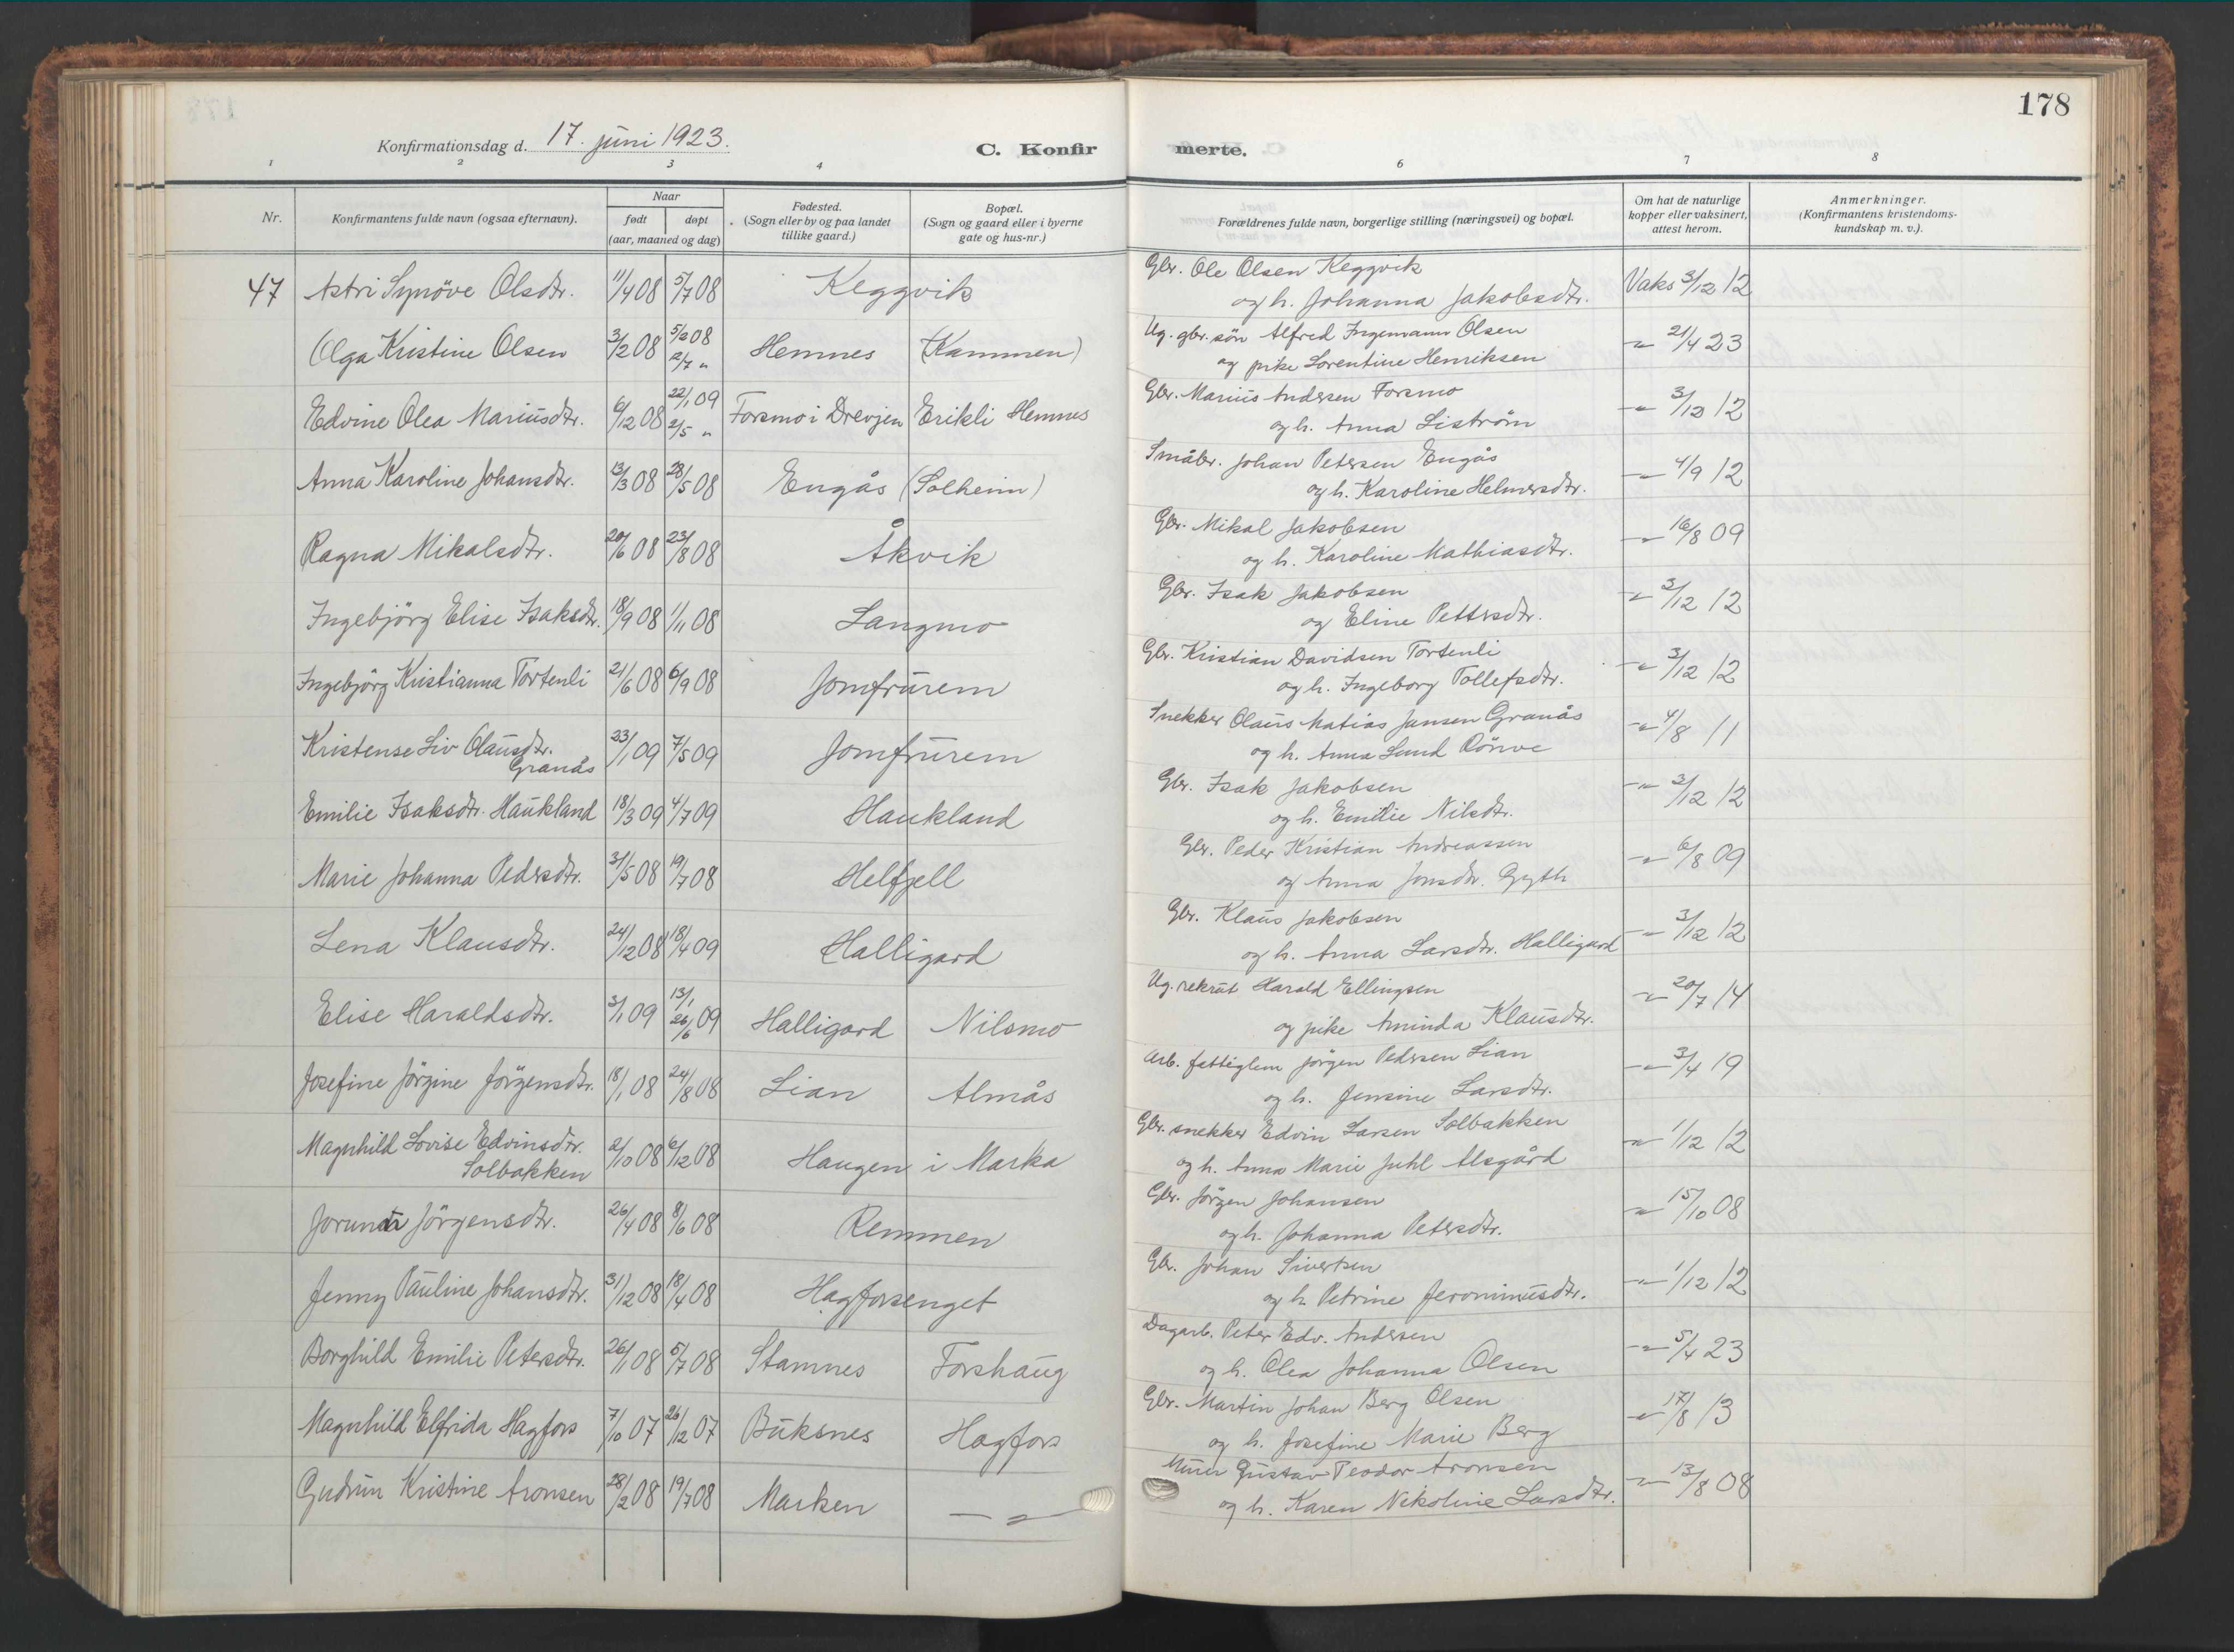 178
Konfirmationsdag d. 17. juni 1923.
C. Konfirmerte.
1 2 3 4 6 7 8
Nr.
Konfirmantens fulde navn (ogsaa efternavn).
Naar
født døpt
(aar, maaned og dag)
Fødested.
(Sogn eller by og paa landet
tillike gaard.)
Bopæl.
(Sogn og gaard eller i byerne
gate og hus-nr.)
Forældrenes fulde navn, borgerlige stilling (næringsvei) og bopæl.
Om hat de naturlige
kopper eller vaksinert,
attest herom.
Anmerkninger.
(Konfirmantens kristendoms-
kundskap m. v.).
47 Astri Synöve Olsdtr. 11/4 08 5/7 08 Keggvik
Gbr. Ole Olsen Keggvik
og h. Johanna Jakobsdtr. Vaks 3/12 12
Olga Kristine Olsen 3/2 08 5/2 08 2/7 " Hemnes (Kammen)
Ug. gbr. sön Alfred Ingemann Olsen
og pike Lorentine Henriksen -"- 21/4 23
Edvine Olea Mariusdtr. 6/12 08 22/1 09 2/5 " Forsmo i Drevjen Erikli Hemnes
Gbr. Marius Andersen Forsmo
og h. Anna Liström -"- 3/12 12
Anna Karoline Johansdtr. 13/3 08 28/5 08 Engås (Solheim)
Småbr. Johan Petersen Engås
og h. Karoline Helmersdtr. -"- 4/9 12
Ragna Mikalsdtr. 20/6 08 23/8 08 Åkvik
Gbr. Mikal Jakobsen
og h. Karoline Mathiasdtr. -"- 16/8 09
Ingebjörg Elise Isaksdtr. 18/9 08 1/11 08 Langmo
Gbr. Isak Jakobsen
og Eline Pettersdtr. -"- 3/12 12
Ingebjörg Kristianna Tortenli 21/6 08 6/9 08 Jomfrurem
Gbr. Kristian Davidsen Tortenli
og h. Ingeborg Tollefsdtr. -"- 3/12 12
Kristense Liv Olausdtr.
Granås 23/1 09 7/5 09 Jomfrurem
Snekker Olaus Matias Jansen Granås
og h. Anna Lund Rönve -"- 4/8 11
Emilie Isaksdtr. Haukland 18/3 09 4/7 09 Haukland
Gbr. Isak Jakobsen
og h. Emilie Nilsdtr. -"- 3/12 12
Marie Johanna Pedersdtr. 31/5 08 19/7 08 Helfjell
Gbr. Peder Kristian Andreassen
og Anna Jonsdtr. Gyth -"- 6/8 09
Lena Klausdtr. 24/12 08 18/4 09 Halligard
Gbr. Klaus Jakobsen
og h. Anna Larsdtr. Halligard -"- 3/12 12
Elise Haraldsdtr. 3/1 09 13/1 26/6 09 Halligard Nilsmo
Ug. rekrut Harald Ellingsen
og pike Aminda Klausdtr. -"- 20/7 14
Josefine Jörgine Jörgensdtr. 18/1 08 24/8 08 Lian Almås
Arb. fattiglem Jörgen Pedersen Lian
og h. Jensine Larsdtr. -"- 3/4 19
Magnhild Lovise Edvinsdtr.
Solbakken 2/10 08 6/12 08 Haugen i Marka
Gbr. snekker Edvin Larsen Solbakken
og h. Anna Marie Juhl Alsgård -"- 1/12 12
Jorunn Jörgensdtr. 26/4 08 8/6 08 Remmen
Gbr. Jörgen Johansen
og h. Johanna Petersdtr. -"- 15/10 08
Jenny Pauline Johansdtr. 31/12 08 18/4 08 Hagforsenget
Gbr. Johan Sivertsen
og h. Petrine Jeronimusdtr. -"- 1/12 12
Borghild Emilie Petersdtr. 26/1 08 5/7 08 Stamnes Forshaug
Dagarb. Peter Edv. Andersen
og h. Olea Johanna Olsen -"- 5/4 23
Magnhild Elfrida Hagfors 7/10 07 26/12 07 Buksnes Hagfors
Gbr. Martin Johan Berg Olsen
og h. Josefine Marie Berg -"- 17/8 13
Gudrun Kristine Aronsen 28/2 08 19/7 08 Marken -"-
Murer Gustav Peodor Aronsen
og h. Karen Nikoline Larsdtr. -"- 13/8 08